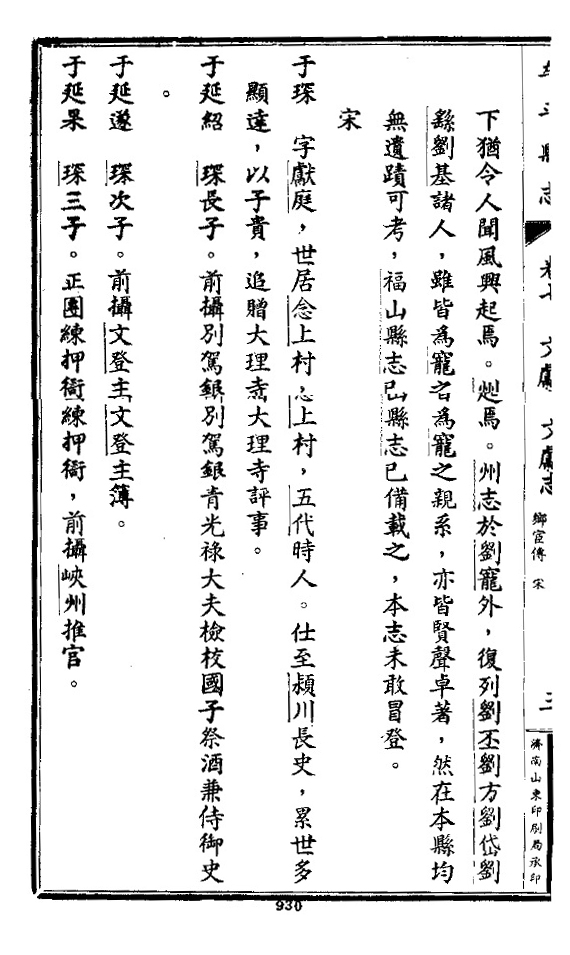 牟平縣志 卷七 文獻 文獻志 鄉宦傳 宋 三 濟南山東印刷局承印
下猶令人聞風興起焉。起焉。州志於劉寵外，復列劉丕劉方劉岱劉
繇劉基諸人，雖皆爲寵之爲寵之親系，亦皆賢聲卓著，然在本縣均
無遺蹟可考，福山縣志已山縣志已備載之，本志未敢冒登。
宋
于琛　字獻庭，世居念上村念上村，五代時人。仕至潁川長史，累世多
顯達，以子貴，追贈大理寺大理寺評事。
于延紹　琛長子。前攝別駕銀別駕銀青光祿大夫檢校國子祭酒兼侍御史
。
于延遂　琛次子。前攝文登主文登主簿。
于延果　琛三子。正團練押衙練押衙，前攝峽州推官。
930